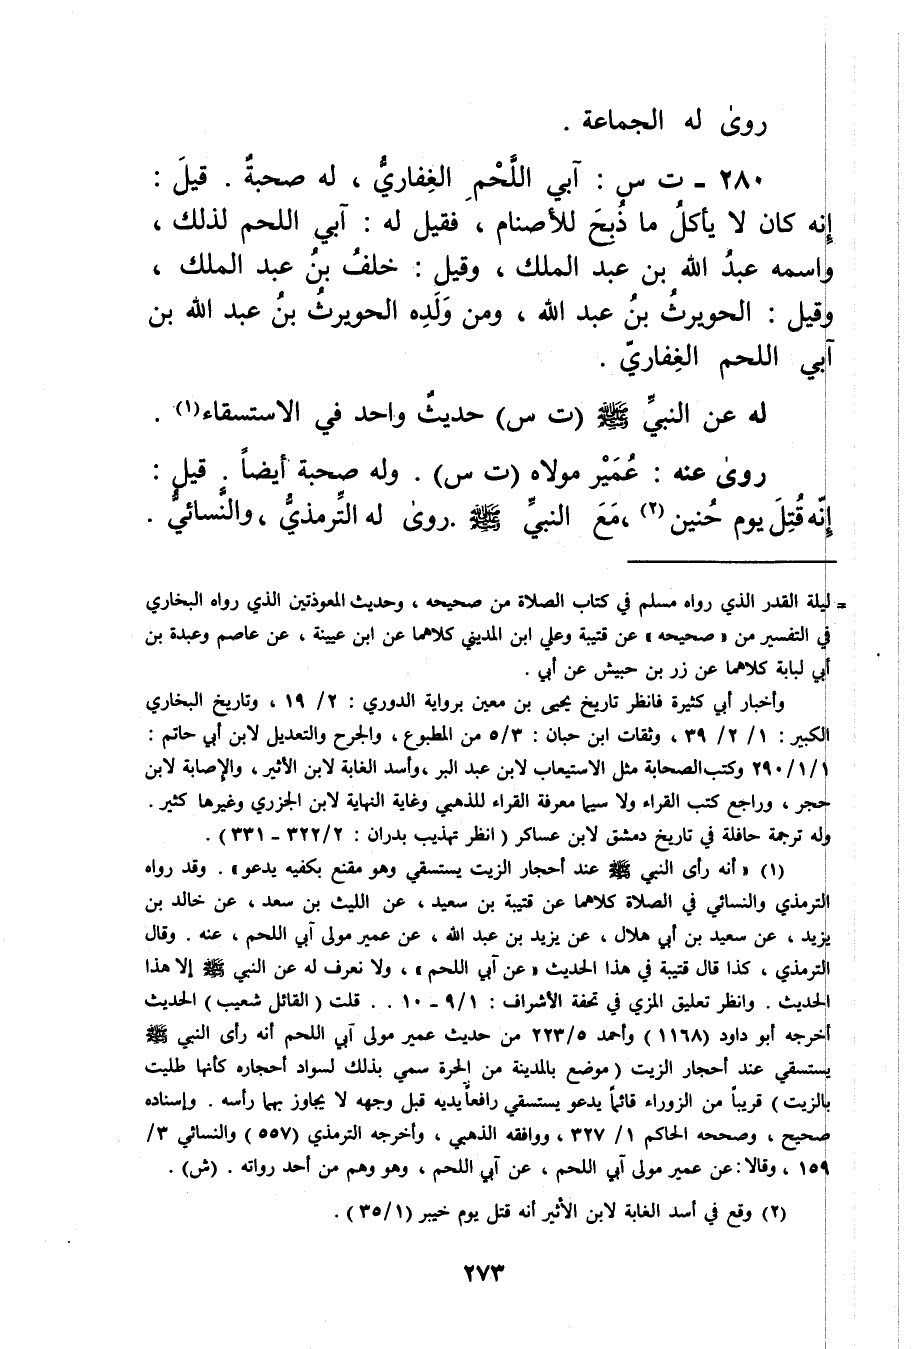 روىٰ له الجماعة .
٢٨٠ ـ ت س : آبي اللَّحْمِ الغِفاريُّ ، له صحبةٌ . قيلَ :
إنه كان لا يأكلُ ما ذُبِحَ للأصنام ، فقيل له : آبي اللحم لذلك ،
واسمه عبدُ الله بن عبد الملك ، وقيل : خلفُ بنُ عبد الملك ،
وقيل : الحويرثُ بنُ عبد الله ، ومن وَلَدِه الحويرثُ بنُ عبد الله بن
آبي اللحم الغِفاريّ .
له عن النبيِّ ﷺ (ت س) حديثٌ واحد في الاستسقاء(١) .
روىٰ عنه : عُمَيْر مولاه (ت س) . وله صحبة أيضاً . قيل :
إنّه قُتِلَ يوم حُنين (٢) ،مَعَ النبيِّ ﷺ .روىٰ له التِّرمذيُّ ،والنَّسائيُّ .
= ليلة القدر الذي رواه مسلم في كتاب الصلاة من صحيحه ، وحديث المعوذتين الذي رواه البخاري
في التفسير من « صحيحه » عن قتيبة وعلي ابن المديني كلاهما عن ابن عيينة ، عن عاصم وعبدة بن
أبي لبابة كلاهما عن زر بن حبيش عن أبي .
وأخبار أبي كثيرة فانظر تاريخ يحيى بن معين برواية الدوري : ٢/ ١٩ ، وتاريخ البخاري
الكبير : ١/ ٢/ ٣٩ ، وثقات ابن حبان : ٥/٣ من المطبوع ، والجرح والتعديل لابن أبي حاتم :
٢٩٠/١/١ وكتب الصحابة مثل الاستيعاب لابن عبد البر ،وأسد الغابة لابن الأثير ، والإصابة لابن
حجر ، وراجع كتب القراء ولا سيما معرفة القراء للذهبي وغاية النهاية لابن الجزري وغيرها كثير .
وله ترجمة حافلة في تاريخ دمشق لابن عساكر ( انظر تهذيب بدران : ٣٢٢/٢ ـ ٣٣١ ) .
(١) « أنه رأى النبي ﷺ عند أحجار الزيت يستسقي وهو مقنع بكفيه يدعو» . وقد رواه
الترمذي والنسائي في الصلاة كلاهما عن قتيبة بن سعيد ، عن الليث بن سعد ، عن خالد بن
يزيد ، عن سعيد بن أبي هلال ، عن يزيد بن عبد الله ، عن عمير مولى آبي اللحم ، عنه . وقال
الترمذي ، كذا قال قتيبة في هذا الحديث « عن آبي اللحم » ، ولا نعرف له عن النبي ﷺ إلا هذا
الحديث . وانظر تعليق المزي في تحفة الأشراف : ٩/١ ـ ١٠ . . قلت ( القائل شعيب ) الحديث
أخرجه أبو داود (١١٦٨ ) وأحمد ٢٢٣/٥ من حديث عمير مولى آبي اللحم أنه رأى النبي ﷺ
يستسقي عند أحجار الزيت ( موضع بالمدينة من الحرة سمي بذلك لسواد أحجاره كأنها طليت
بالزيت ) قريباً من الزوراء قائماً يدعو يستسقي رافعاً يديه قبل وجهه لا يجاوز بهما رأسه . وإسناده
صحيح ، وصححه الحاكم ١/ ٣٢٧ ، ووافقه الذهبي ، وأخرجه الترمذي (٥٥٧) والنسائي ٣/
١٥٩ ، وقالا : عن عمير مولى آبي اللحم ، عن آبي اللحم ، وهو وهم من أحد رواته . (ش) .
(٢) وقع في أسد الغابة لابن الأثير أنه قتل يوم خيبر (٣٥/١ ) .
٢٧٣